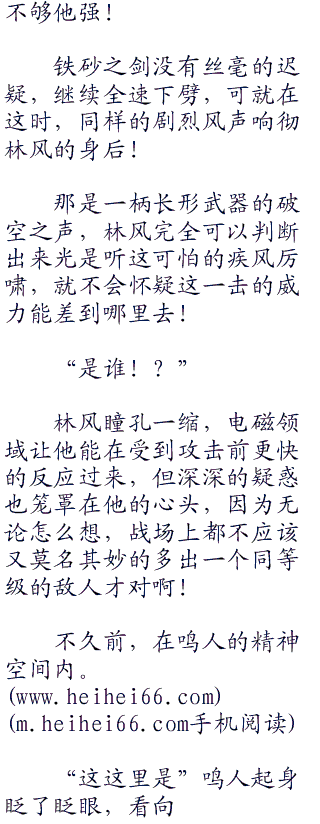 不够他强！
铁砂之剑没有丝毫的迟
疑，继续全速下劈，可就在
这时，同样的剧烈风声响彻
林风的身后！
那是一柄长形武器的破
空之声，林风完全可以判断
出来光是听这可怕的疾风厉
啸，就不会怀疑这一击的威
力能差到哪里去！
“是谁！？”
林风瞳孔一缩，电磁领
域让他能在受到攻击前更快
的反应过来，但深深的疑惑
也笼罩在他的心头，因为无
论怎么想，战场上都不应该
又莫名其妙的多出一个同等
级的敌人才对啊！
不久前，在鸣人的精神
空间内。
(www.heihei66.com)
(m.heihei66.com手机阅读)
“这这里是”鸣人起身
眨了眨眼，看向